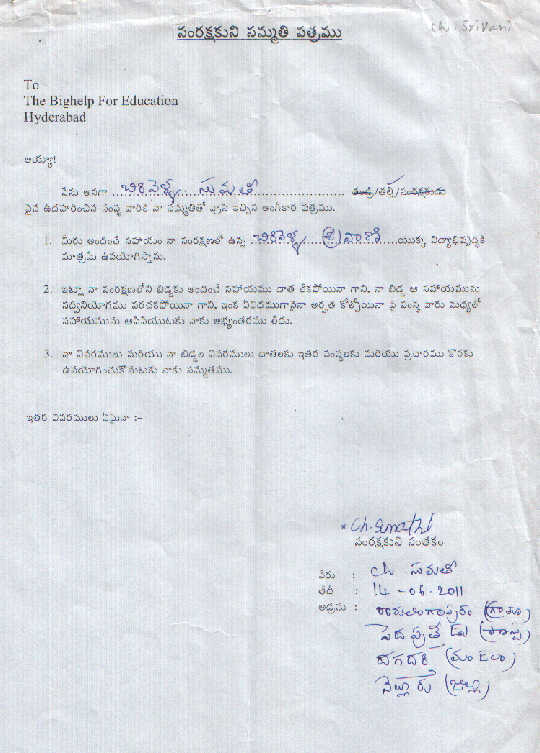 ch. Srivani
సంరక్షకుని సమ్మతి పత్రము
To
The Bighelp For Education
Hyderabad
అయ్యా!
నేను అనగా ..చిరివెళ్ళ.....సుమతి.................. తండ్రి/తల్లి/సంరక్షకుడు
పైన ఉదహరించిన సంస్థ వారికి నా సమ్మతితో వ్రాసి ఇచ్చిన అంగీకార పత్రము.
1. మీరు అందించే సహాయం నా సంరక్షణలో ఉన్న ..చిరివెళ్ళ....శ్రీవాణి ....యొక్క విద్యాభివృద్ధికి
మాత్రమే ఉపయోగిస్తాను.
2. ఇట్లూ నా సంరక్షణలోని బిడ్డకు అందించే సహాయము దాత లేకపోయినా గాని, నా బిడ్డ ఆ సహాయమును
సద్వినియోగము పరచకపోయినా గాని, ఇంక ఏవిధముగానైనా అర్హత కోల్పోయినా పై సంస్థ వారు మధ్యలో
సహాయమును ఆపివేయుటకు నాకు అభ్యంతరము లేదు.
3. నా వివరములు మరియు నా బిడ్డల వివరములు దాతలకు ఇతర సంస్థలకు మరియు ప్రచారము కొరకు
ఉపయోగించుకోనుటకు నాకు సమ్మతము.
ఇతర వివరములు ఏమైనా :-
Ch. Sumathi
సంరక్షకుని సంతకం
పేరు : ch సుమతి
తేదీ : 14-06-2011
అడ్రసు : (గ్రామం)
(పోస్టు)
దగదర్తి (మండలం)
నెల్లూరు (జిల్లా)